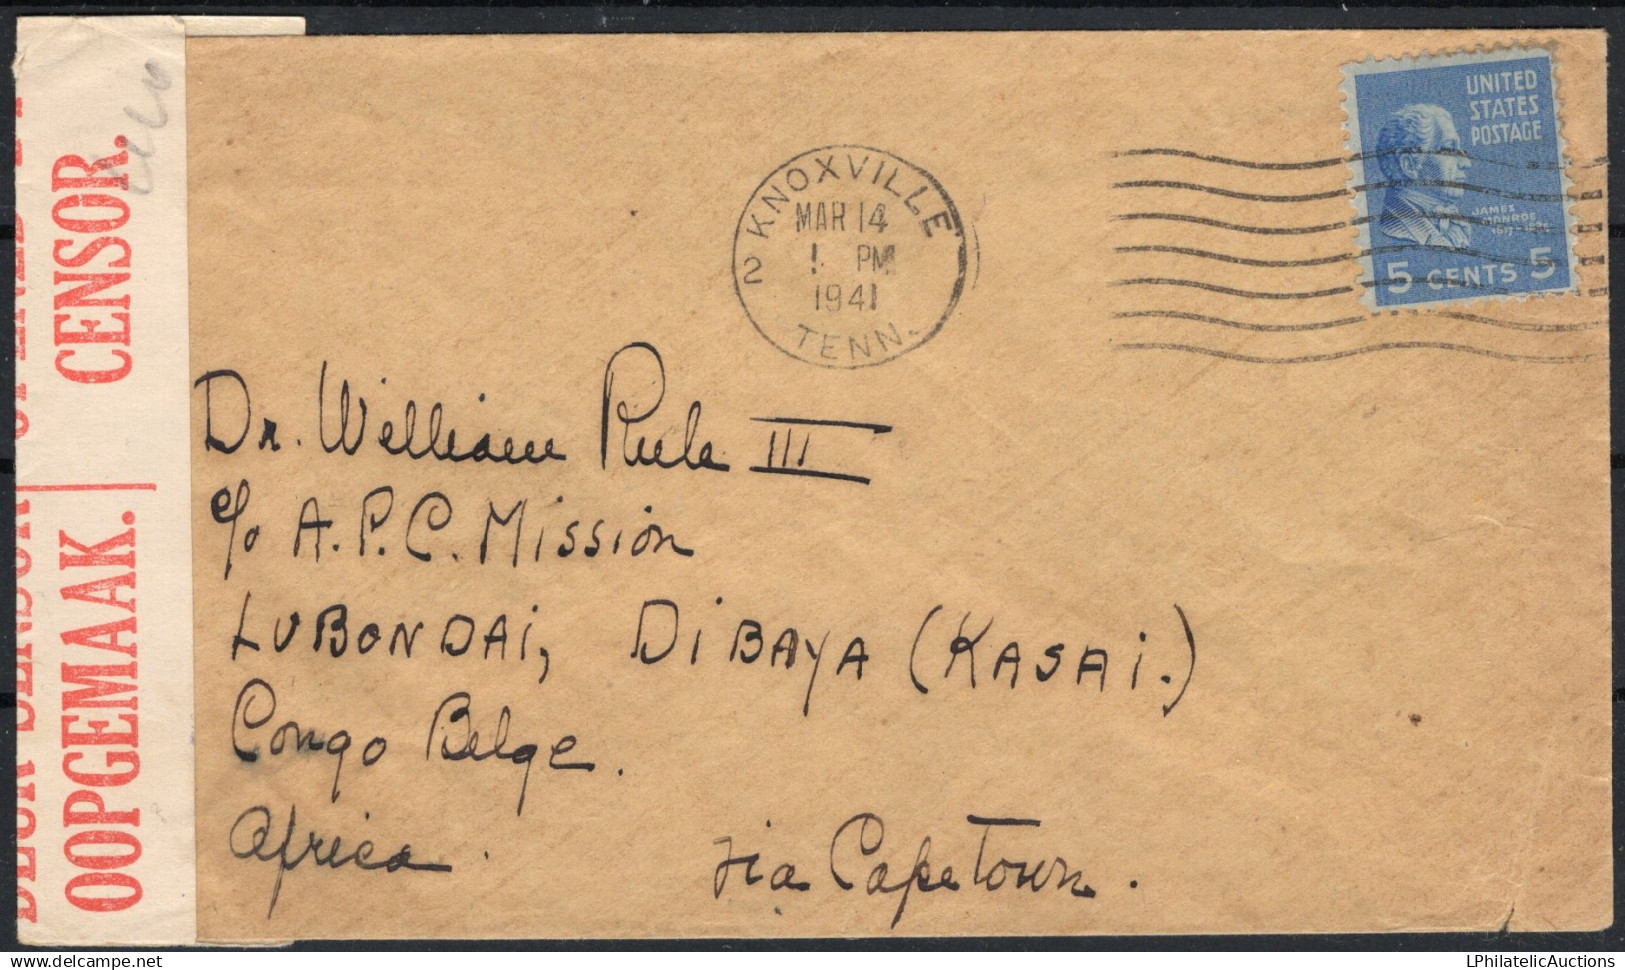 OPENED BY
CENSOR.
DEUR SENSOR
OOPGEMAAK.
KNOXVILLE
2
MAR 14
PM
1941
TENN.
UNITED
STATES
POSTAGE
JAMES
MONROE
5 CENTS 5
Dr. William Rule III
c/o A.P.C. Mission
LUBONDAI, DIBAYA (KASAI.)
Congo Belge.
Africa.
via CapeTown.
LPhilatelicAuctions